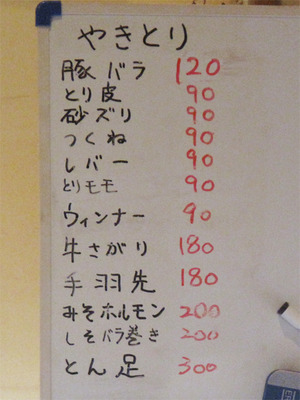 やきとり
豚バラ 120
とり皮 90
砂ズリ 90
つくね 90
レバー 90
とりモモ 90
ウィンナー 90
牛さがり 180
手羽先 180
みそホルモン 200
しそバラ巻き 200
とん足 300